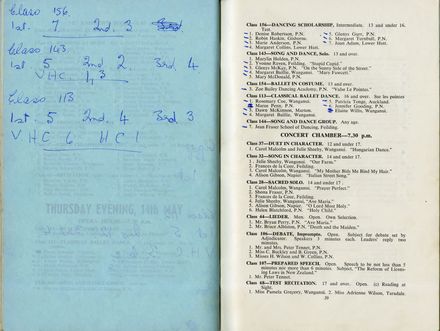 Class 156
1st. 7 2nd. 3 3rd
Class 143
1st 5 2nd 2. 3rd 4
V H C 1, 3
Class 113
1st. 5 2nd. 4 3rd 3
V H C 6 H C 1
THURSDAY EVENING, 14th MAY
Class 156—DANCING SCHOLARSHIP, Intermediate. 13 and under 16.
Test.
1. Denise Robertson, P.N.
2. Robin Haskin, Gisborne.
3. Marie Anderson, P.N.
4. Margaret Collins, Lower Hutt.
5. Glenys Gurr, P.N.
6. Margaret Turnbull, P.N.
7. Joan Adam, Lower Hutt.
Class 143—SONG AND DANCE, Solo. 13 and over.
1. Marylin Holden, P.N.
2. Yvonne Raven, Feilding. "Stupid Cupid."
3. Glenys McKay, P.N. "On the Sunny Side of the Street."
4. Margaret Baillie, Wanganui. "Mary Fawcett."
5. Mary McDonald, P.N.
Class 154—BALLET IN COSTUME. 13 and over.
3. Zoe Bailey Dancing Academy, P.N. "Valse Le Pointes."
Class 113—CLASSICAL BALLET DANCE. 16 and over. Six ins points
1. Rosemary Coe, Wanganui.
2. Maree Penn, P.N.
3. Dawn McKinnon, Marton.
4. Margaret Baillie, Wanganui.
5. Patricia Tonge, Auckland.
6. Jennifer Gooding, P.N.
7. Elaine Willis, Wanganui.
Class 144—SONG AND DANCE GROUP. Any age.
7. Jean Fraser School of Dancing, Feilding.
CONCERT CHAMBER—7.30 p.m.
Class 37—DUET IN CHARACTER. 12 and under 17.
1. Carol Malcolm and Julie Sheehy, Wanganui. "Hungarian Dance."
Class 32—SONG IN CHARACTER. 14 and under 17.
1. Julie Sheehy, Wanganui. "Our Farm."
2. Frances de la Cour, Feilding.
3. Carol Malcolm, Wanganui. "My Mother Bids Me Bind My Hair."
4. Alison Gibson, Napier. "Italian Street Song."
Class 28—SACRED SOLO. 14 and under 17.
1. Carol Malcolm, Wanganui. "Prayer Perfect."
2. Shona Fraser, P.N.
3. Frances de la Cour, Feilding.
4. Julie Sheehy, Wanganui. "Ave Maria."
5. Alison Gibson, Napier. "O Lord Most Holy."
6. Helen Blatchford, P.N. "Holy Child."
Class 44—LIEDER. Men. Open. Own Selection.
1. Mr. Bryan Perry, P.N. "Ave Maria."
2. Mr. Bruce Albiston, P.N. "Death and the Maiden."
Class 106—DEBATE, Impromptu. Open. Subject for debate set by
Adjudicator. Speakers 3 minutes each. Leaders' reply two
minutes.
1. Mr. and Mrs. Peter Tennet, P.N.
2. Miss C. Buckley and B. Green, P.N.
3. Misses H. Wilson and W. Collins, P.N.
Class 107—PREPARED SPEECH. Open. Speech to be not less than 5
minutes nor more than 6 minutes. Subject, "The Reform of Licens-
ing Laws in New Zealand."
1. Mr. Peter Tennet.
Class 68—TEST RECITATION. 17 and over. Open. (c) Reading at
Sight.
1. Miss Pamela Gregory, Wanganui. 2. Miss Adrienne Wilson, Taradale.
39